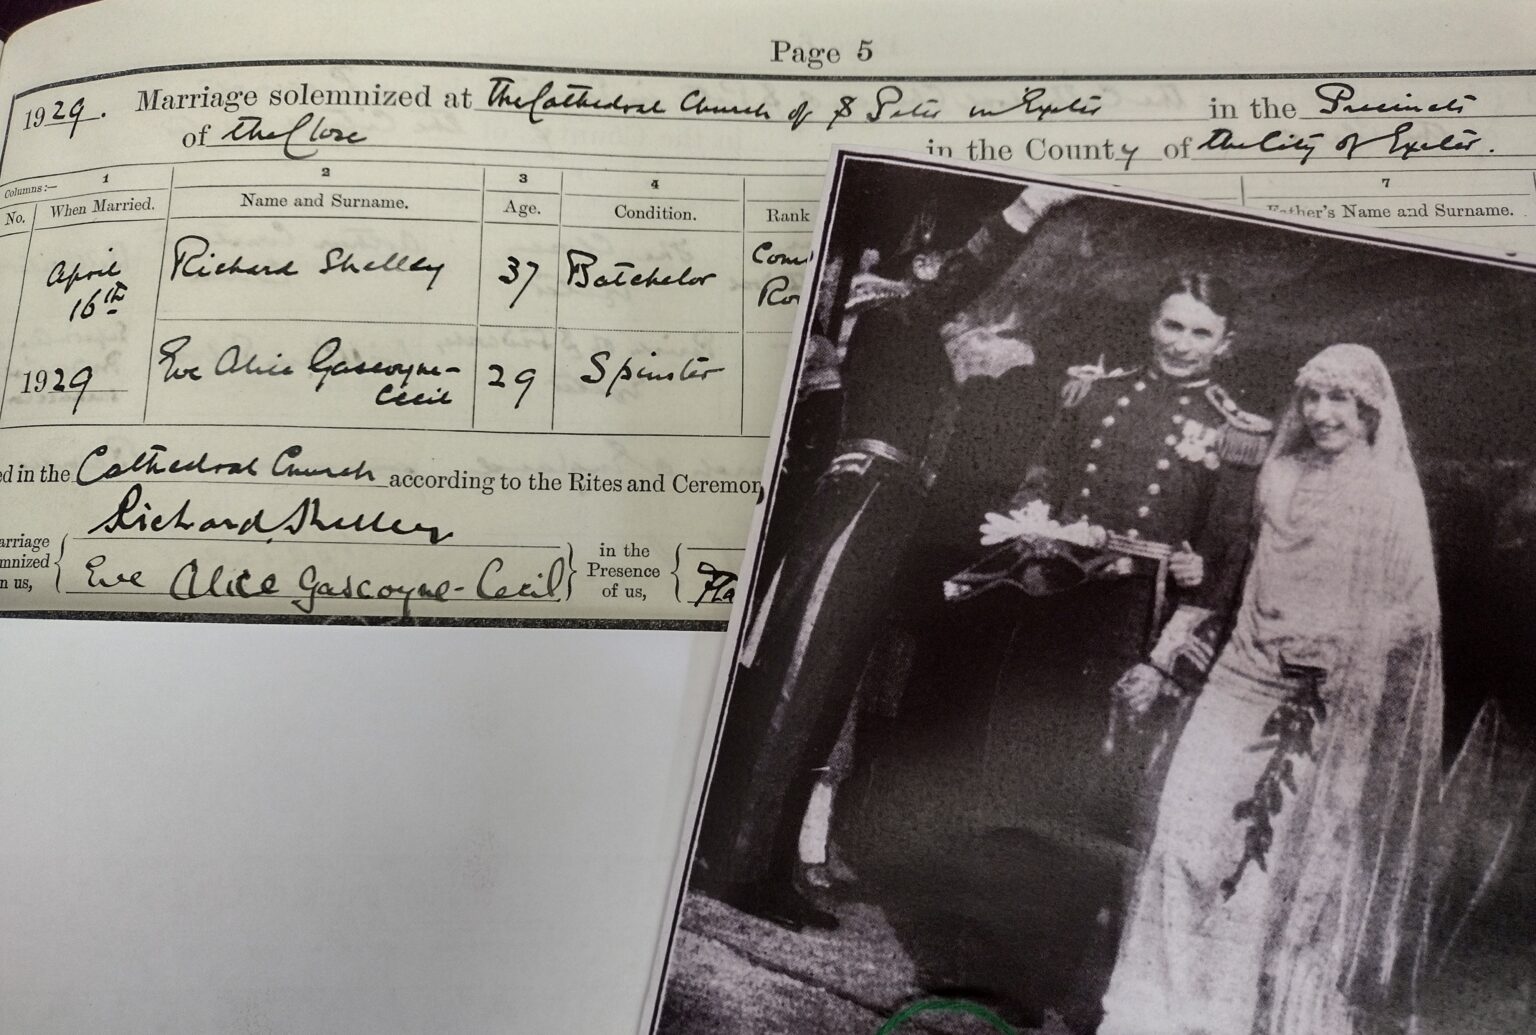 Page 5
1929. Marriage solemnized at The Cathedral Church of S Peter in Exeter in the Precincts
of the Close in the County of the City of Exeter.
Columns:— 1 2 3 4 7
No. When Married. Name and Surname. Age. Condition. Rank Father's Name and Surname.
April 16th Richard Shelley 37 Batchelor
1929 Eve Alice Gascoyne-Cecil 29 Spinster
ed in the Cathedral Church according to the Rites and Ceremon
arriage
mnized
n us,
Richard Shelley
Eve Alice Gascoyne-Cecil
in the
Presence
of us,